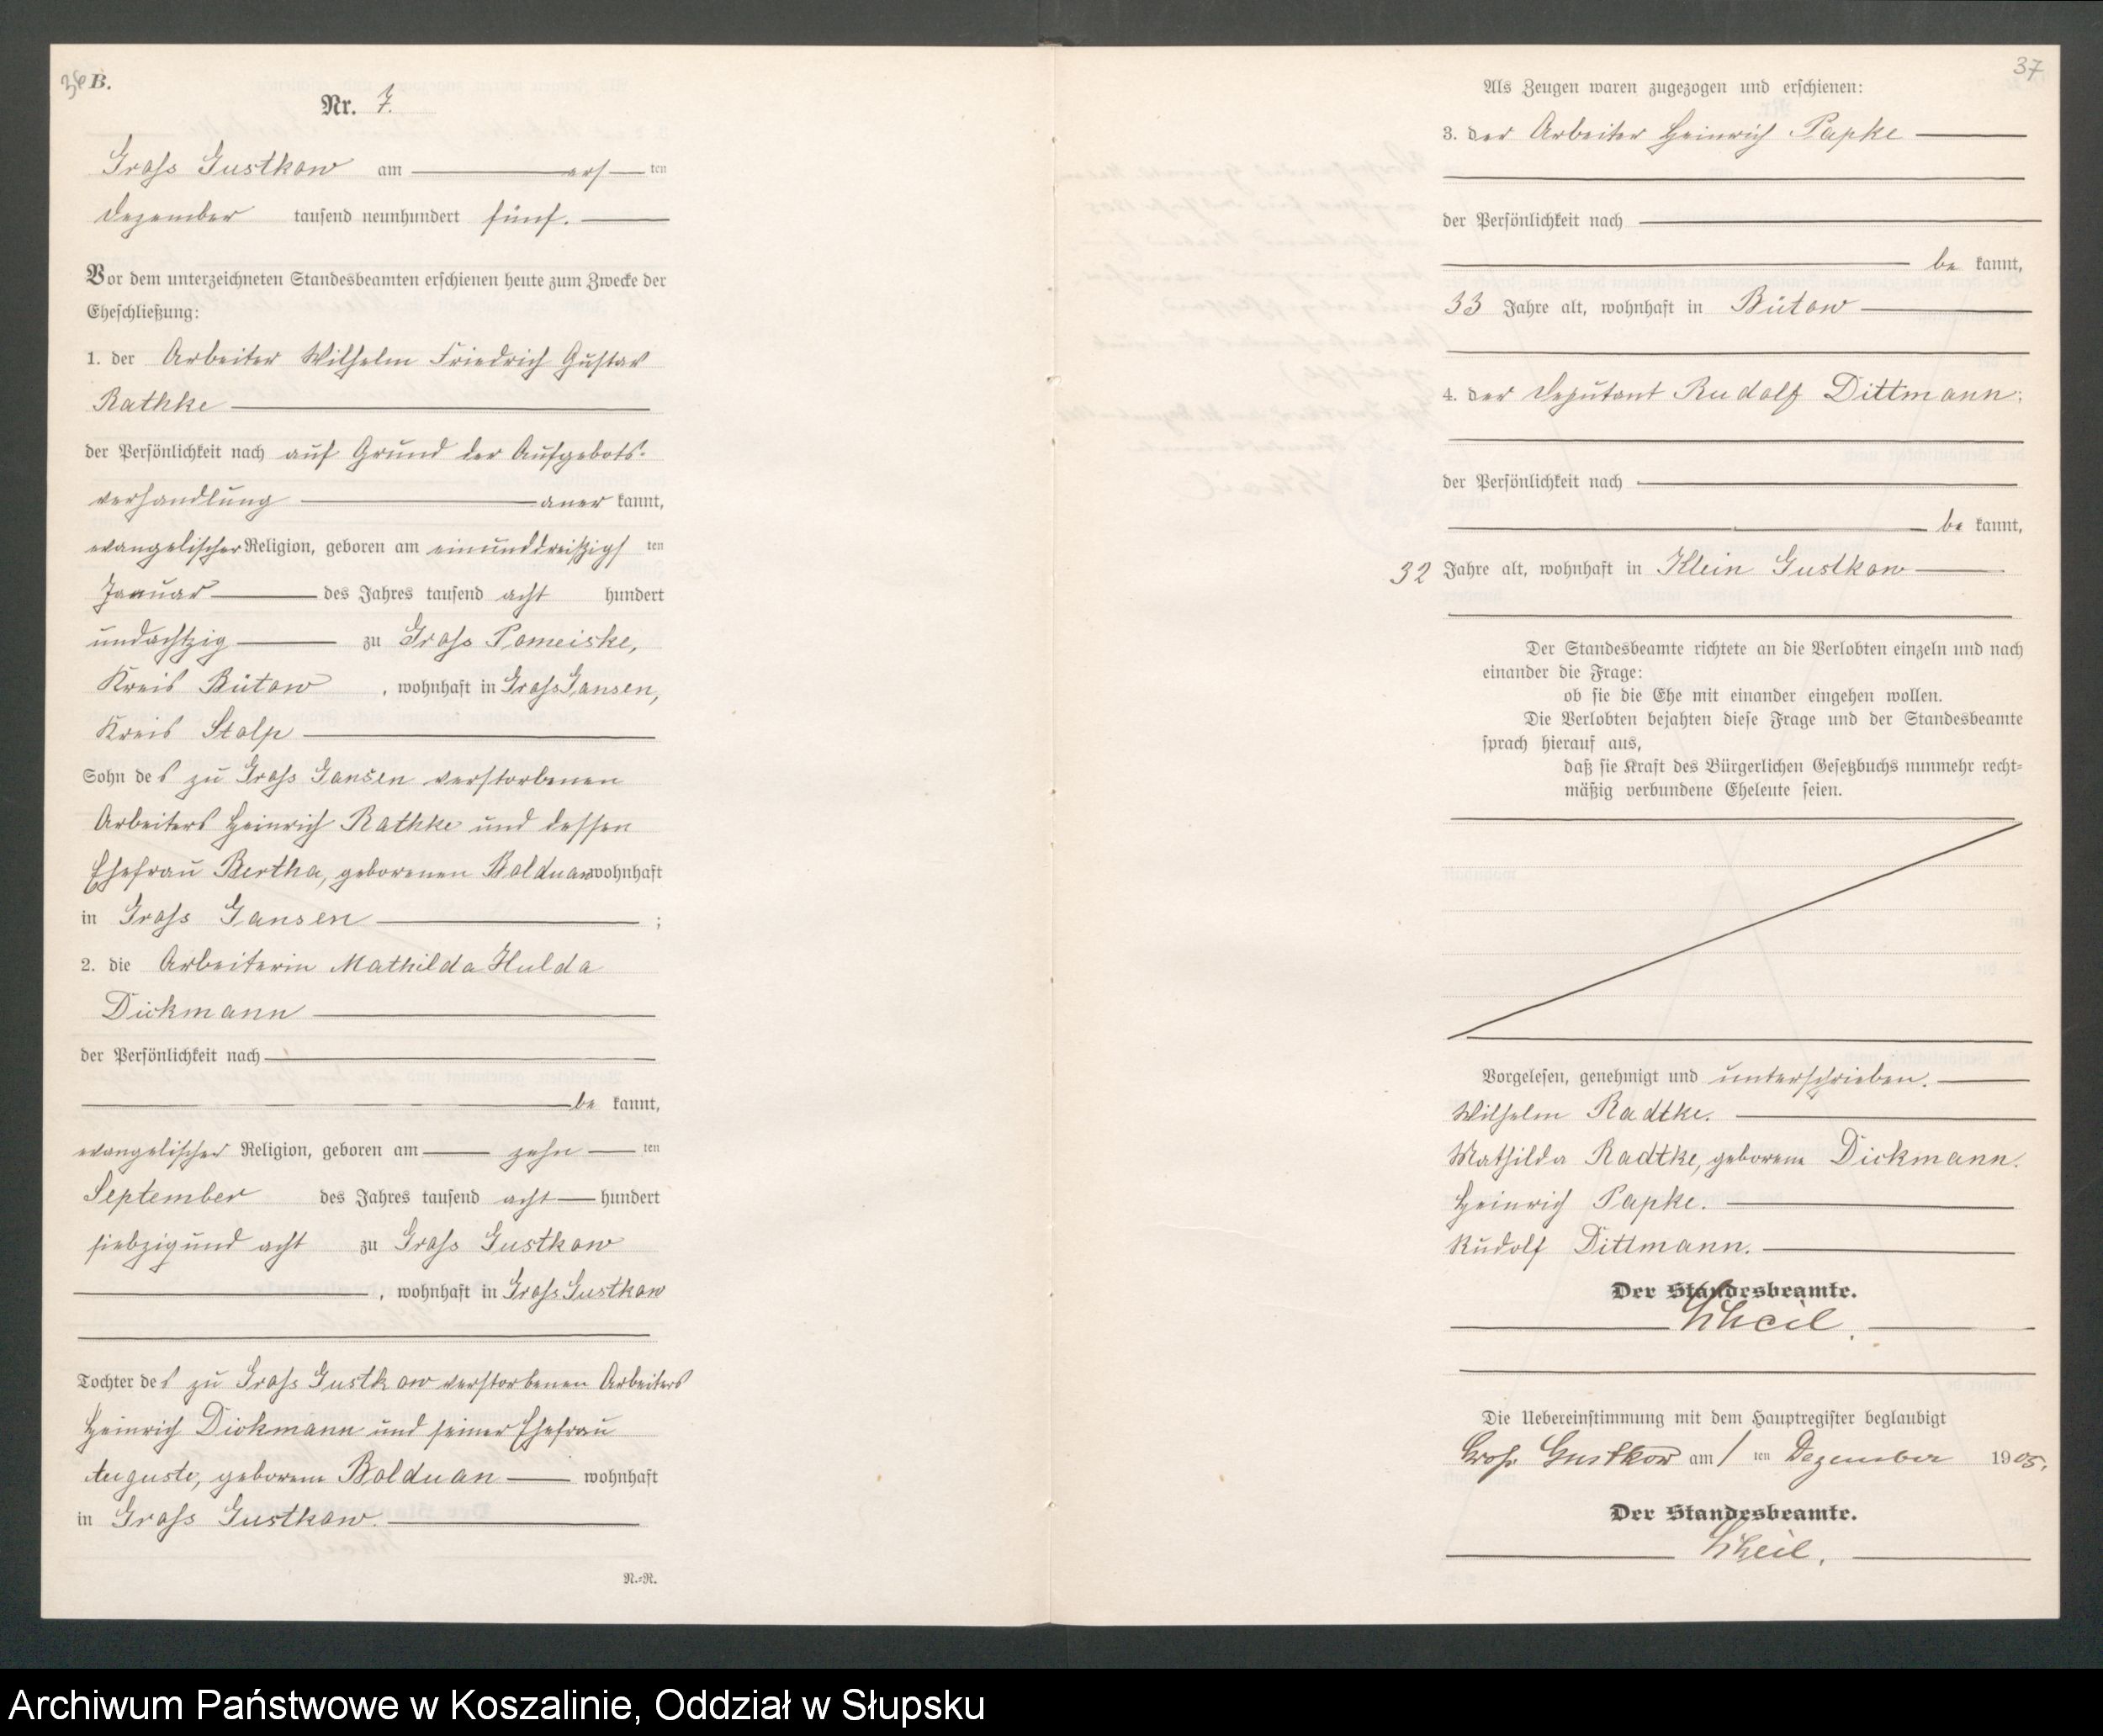 36 B.
Nr. 7.
Gross Gustkow am ers ten
Dezember tausend neunhundert fünf.
Vor dem unterzeichneten Standesbeamten erschienen heute zum Zwecke der
Eheschließung:
1. der Arbeiter Wilhelm Friedrich Gustav
Rathke
der Persönlichkeit nach auf Grund der Aufgebots-
verhandlung aner kannt,
evangelischer Religion, geboren am einunddreißigs ten
Januar des Jahres tausend acht hundert
undachtzig zu Gross Pomeiske,
Kreis Bütow, wohnhaft in Gross Gansen,
Kreis Stolp
Sohn des zu Gross Gansen verstorbenen
Arbeiters Heinrich Rathke und dessen
Ehefrau Bertha, geborenen Balduan wohnhaft
in Gross Gansen ;
2. die Arbeiterin Mathilda Hulda
Dickmann
der Persönlichkeit nach
be kannt,
evangelischer Religion, geboren am zehn ten
September des Jahres tausend acht hundert
siebzigund acht zu Gross Gustkow
, wohnhaft in Gross Gustkow
Tochter des zu Gross Gustkow verstorbenen Arbeiters
Heinrich Dickmann und seiner Ehefrau
Auguste, geborene Balduan wohnhaft
in Gross Gustkow.
N.=N.
37
Als Zeugen waren zugezogen und erschienen:
3. der Arbeiter Heinrich Papke
der Persönlichkeit nach
be kannt,
33 Jahre alt, wohnhaft in Bütow
4. der Deputant Rudolf Dittmann;
der Persönlichkeit nach
be kannt,
32 Jahre alt, wohnhaft in Klein Gustkow
Der Standesbeamte richtete an die Verlobten einzeln und nach
einander die Frage:
ob sie die Ehe mit einander eingehen wollen.
Die Verlobten bejahten diese Frage und der Standesbeamte
sprach hierauf aus,
daß sie Kraft des Bürgerlichen Gesetzbuchs nunmehr recht=
mäßig verbundene Eheleute seien.
Vorgelesen, genehmigt und unterschrieben.
Wilhelm Radtke.
Mathilda Radtke, geborene Dickmann.
Heinrich Papke.
Rudolf Dittmann.
Der Standesbeamte.
Die Uebereinstimmung mit dem Hauptregister beglaubigt
Gross Gustkow am 1 ten Dezember 1905.
Der Standesbeamte.
Archiwum Państwowe w Koszalinie, Oddział w Słupsku